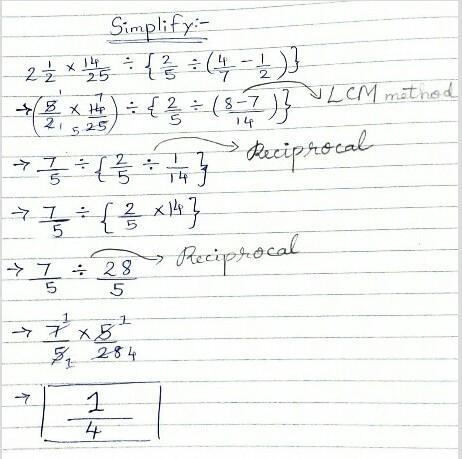 Simplify:-
2 1/2 × 14/25 ÷ { 2/5 ÷ ( 4/7 - 1/2 ) }
→ ( 5/2 × 14/25 ) ÷ { 2/5 ÷ ( 8-7/14 ) } → LCM method
→ 7/5 ÷ { 2/5 ÷ 1/14 } → Reciprocal
→ 7/5 ÷ { 2/5 × 14 }
→ 7/5 ÷ 28/5 → Reciprocal
→ 7/5 × 5/28
→ 1/4